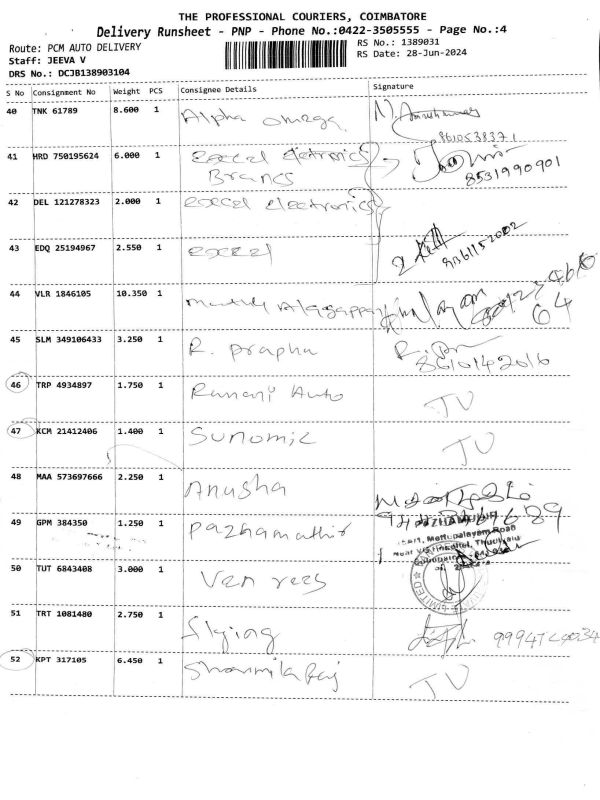 THE PROFESSIONAL COURIERS, COIMBATORE
Delivery Runsheet - PNP - Phone No.:0422-3505555 - Page No.:4
Route: PCM AUTO DELIVERY
RS No.: 1389031
Staff: JEEVA V
RS Date: 28-Jun-2024
DRS No.: DCJB138903104
S No Consignment No Weight PCS Consignee Details Signature
40 TNK 61789 8.600 1 Alpha omega
8610538371
41 HRD 750195624 6.000 1 excel eletronics
Brancs
8531990901
42 DEL 121278323 2.000 1 excel electronics
43 EDQ 25194967 2.550 1 excel
44 VLR 1846105 10.350 1
45 SLM 349106433 3.250 1 R. prapha
8610142016
46 TRP 4934897 1.750 1 Auto JV
47 KCM 21412406 1.400 1 Sunomic JV
48 MAA 573697666 2.250 1 Anusha
49 GPM 384350 1.250 1 Pazhamuthir
Mettupalayam Road
50 TUT 6843408 3.000 1 Van rees
51 TRT 1081480 2.750 1 Flying
52 KPT 317105 6.450 1 JV